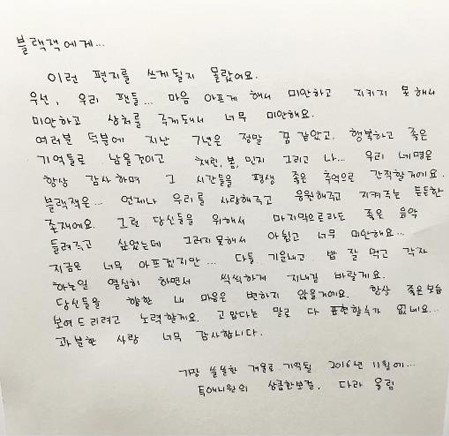 블랙잭에게...
이런 편지를 쓰게될지 몰랐어요.
우선, 우리 팬들... 마음 아프게 해서 미안하고 지키지 못해서
미안하고 상처를 주게되서 너무 미안해요.
여러분 덕분에 지난 7년은 정말 꿈 같았고, 행복하고 좋은
기억들로 남을것이고 채린, 봄, 민지 그리고 나... 우리 네명은
항상 감사하며 그 시간들을 평생 좋은 추억으로 간직할게요.
블랙잭은... 언제나 우리를 사랑해주고 응원해주고 지켜주는 든든한
존재에요. 그런 당신들을 위해서 마지막으로라도 좋은 음악
들려주고 싶었는데 그러지못해서 아쉽고 너무 미안해요...
지금은 너무 아프겠지만... 다들 기운내고 밥 잘 먹고 각자
하는일 열심히 하면서 씩씩하게 지내길 바랄게요.
당신들을 향한 내 마음은 변하지 않을거에요. 항상 좋은모습
보여드리려고 노력할게요. 고맙다는 말로 다 표현할수가 없네요...
과분한 사랑 너무 감사합니다.
가장 쓸쓸한 겨울로 기억될 2016년 11월에...
투애니원의 상큼한보컬, 다라 올림